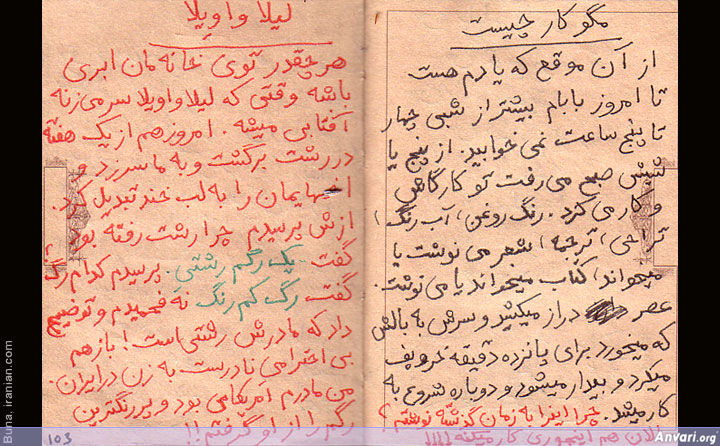 مگو کار چیست
از آن موقع که یادم هست
تا امروز بابام بیشتر از شبی چهار
تا پنج ساعت نمی خوابید. از پنج یا
شیش صبح می رفت تو کارگاهش
و کار می کرد. رنگ روغن، آب رنگ،
تراحی، ترجبه، شعر می نوشت یا
میخواند، کتاب میخواند یا می نوشت.
عصر دراز میکشید و سرش به بالش
که میخورد برای پانزده دقیقه خروپف
میکرد و بیدار میشود و دوباره شروع به
کار میشد. چرا اینرا به زمان گذشته نوشتم؟
الان هم اینجوری کار میکنه!!!!
لیلا واویلا
هر چقدر توی خانه مان ابری
باشه وقتی که لیلا واویلا سر می زنه
آفتابی میشه. امروز هم از یک هفته
در رشت برگشت و به ما سر زد و
اخمهایمان را به لب خند تبدیل کرد.
ازش پرسیدم چرا رشت رفته بود؟
گفت یک رگم رشتی. پرسیدم کدام رگ
گفت رگ کم رنگ نه فهمیدم و توضیح
داد که مادرش رشتی است! باز هم
بی احترامی نادرست به زن در ایران.
من مادرم آمریکایی بود و پررنگترین
رگم را از او گرفتم!!
103
Buna, iranian.com
Anvari.org